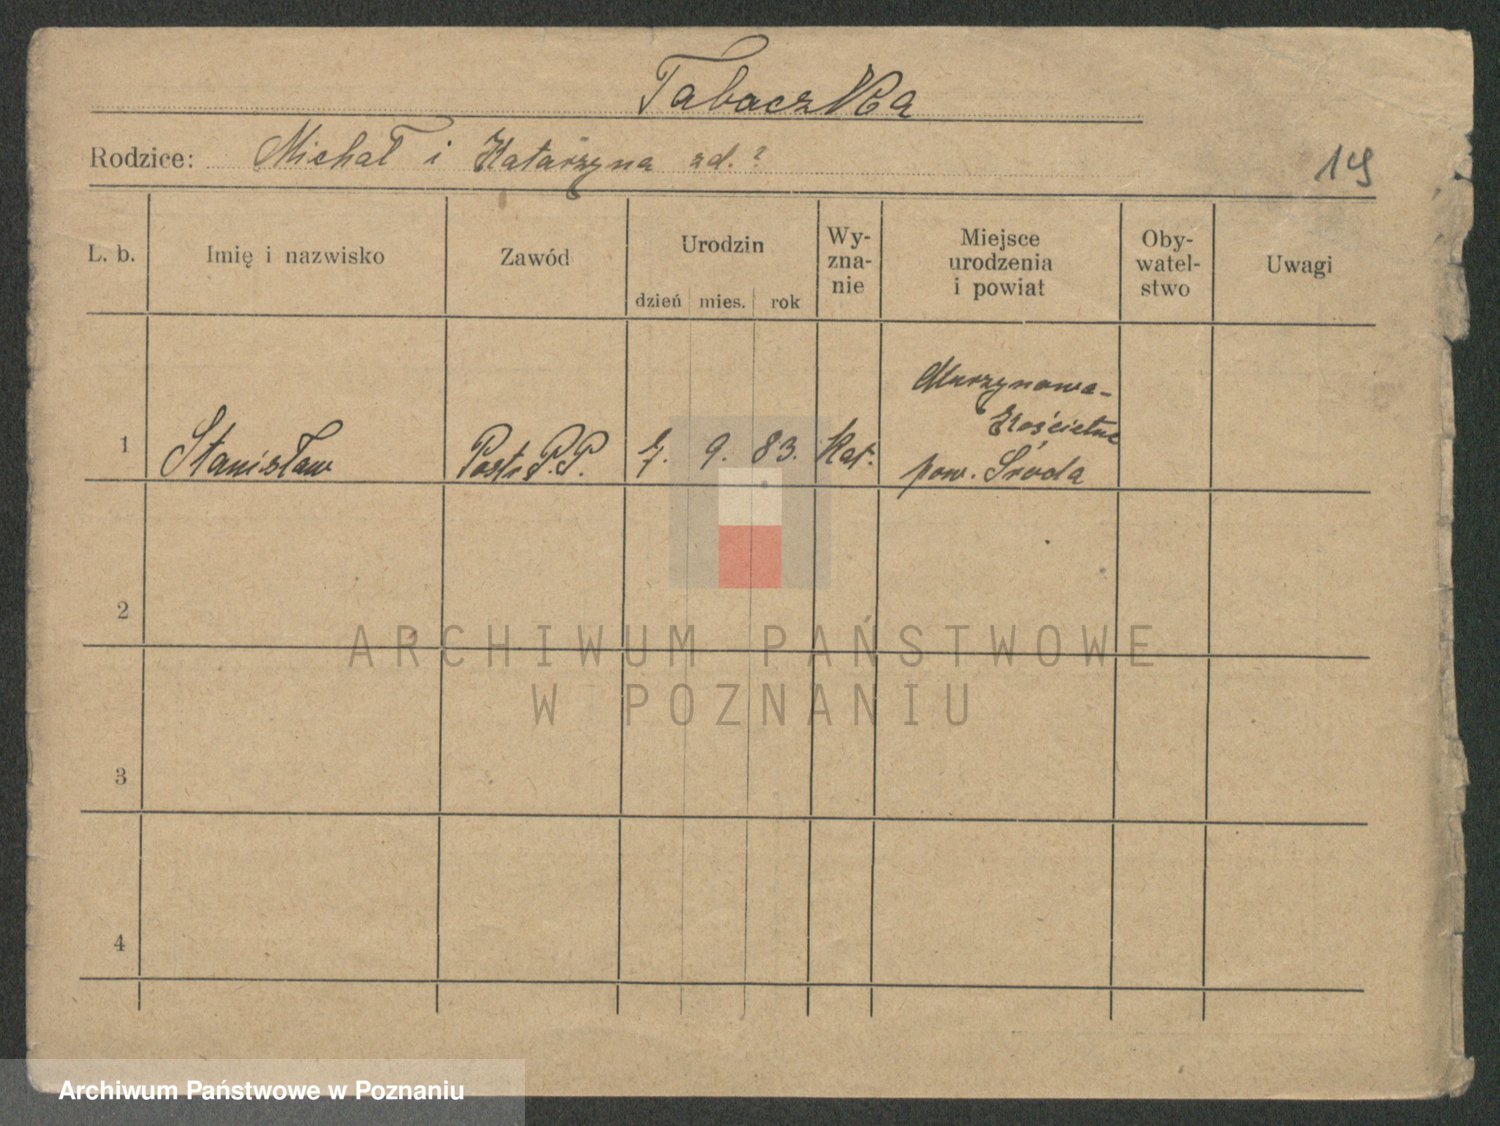 Tabaczka
Rodzice: Michał i Katarzyna zd. ?
19
L. b.
Imię i nazwisko
Zawód
Urodzin
dzień mies. rok
Wy-
zna-
nie
Miejsce
urodzenia
i powiat
Oby-
watel-
stwo
Uwagi
1 Stanisław Post. P.P. 7. 9. 83. Kat.
Murzynowo-
Kościelne
pow. Środa
2
3
4
ARCHIWUM PAŃSTWOWE
W POZNANIU
Archiwum Państwowe w Poznaniu